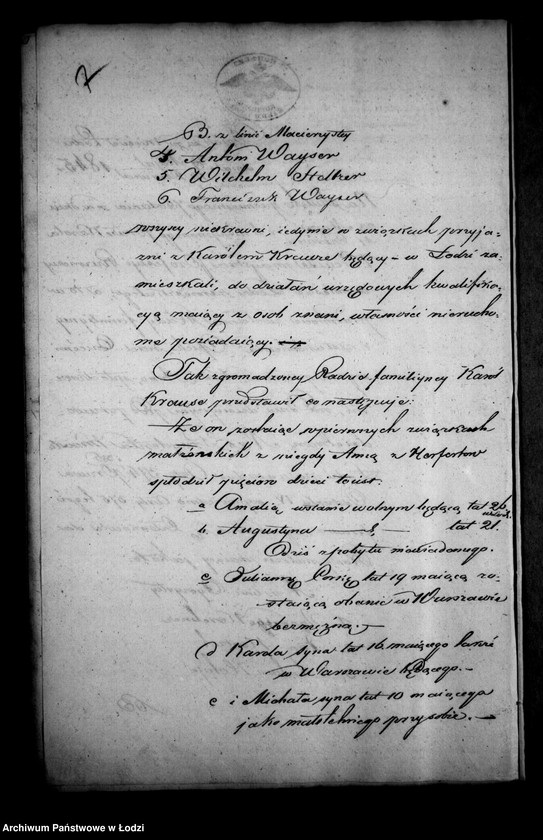 7
B. z linii Macierzystej
4. Antoni Wayser
5. Wilchelm Heltzer
6. Franciszek Wayser
wszyscy niekrewni, iedynie w związkach przyja-
zni z Karolem Krause będący – w Łodzi za-
mieszkali, do działań urzędowych kwalifika-
cyą maiący z osob znani, własności nierucho-
me posiadaiący.
Tak zgromadzoney Radzie familiyney Karol
Krause przedstawił co następuie:
Że on zostaiąc w pierwszych związkach
małżeńskich z niegdy Anną z Herfertow
spłodził pięcioro dzieci to iest.
a Amalią w stanie wolnym będącą lat 26
b. Augustyna lat 21.
Dziś z pobytu niewiadomego.
c Juliannę Corkę lat 19 maiącą zo-
staiącą obecnie w Warszawie
bezmężną. –
d Karola syna lat 16. maiącego także
w Warszawie będącego. –
e i Michała syna lat 10 maiącego
jako małoletniego przy sobie. –
Archiwum Państwowe w Łodzi